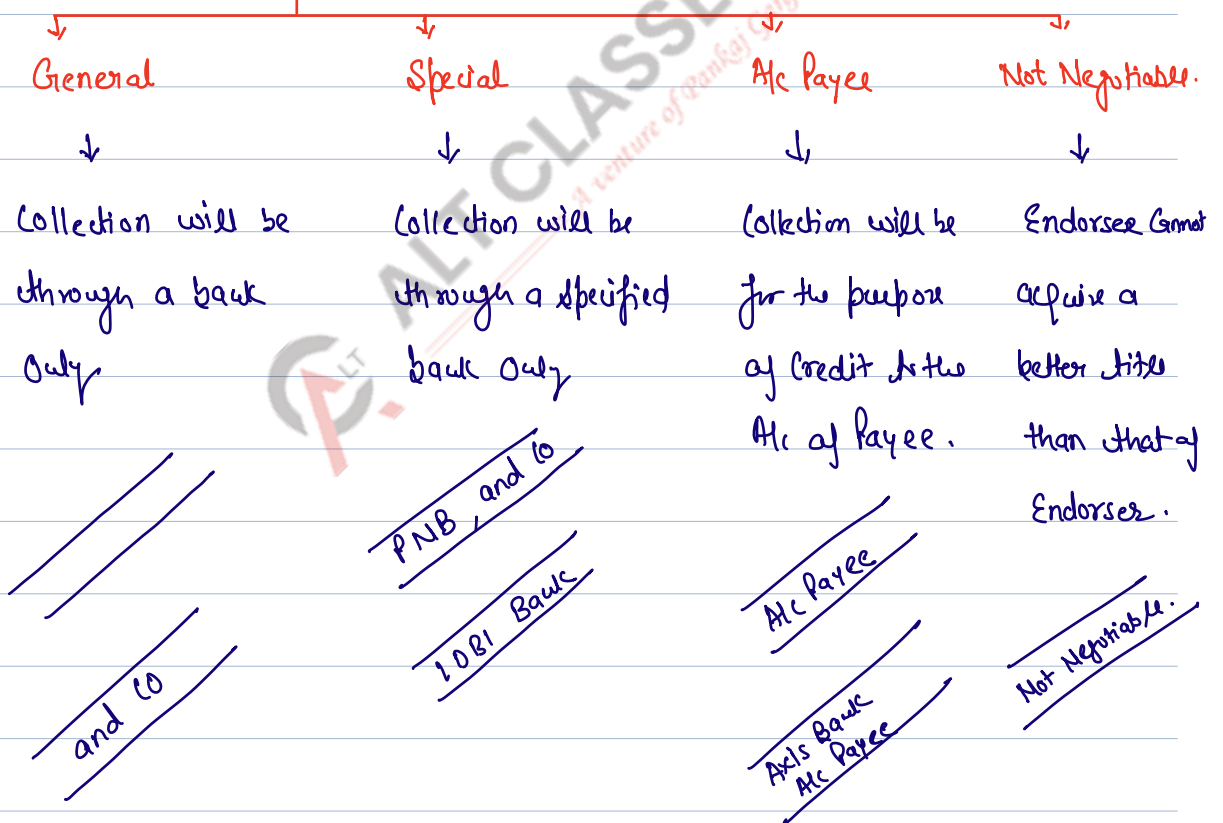 General
Collection will be
through a bank
only
and co
Special
Collection will be
through a specified
bank only
PNB, and co
IDBI Bank
A/c Payee
Collection will be
for the purpose
of Credit to the
A/c of Payee.
A/c Payee
Axis Bank
A/c Payee
Not Negotiable.
Endorsee Cannot
acquire a
better title
than that of
Endorser.
Not Negotiable.
ALT CLASSE
A venture of Pankaj Garg
ALT